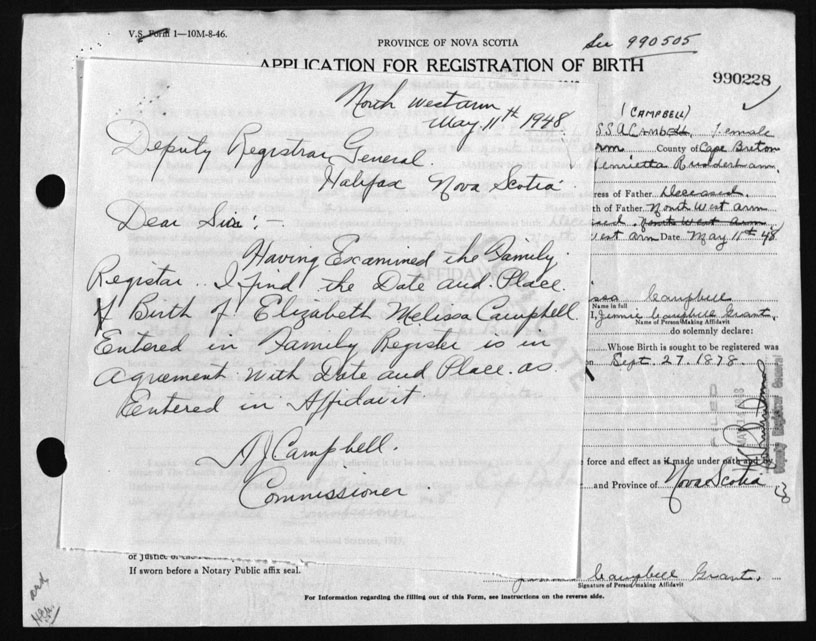 V.S. Form 1—10M-8-46.
PROVINCE OF NOVA SCOTIA
See 990505
APPLICATION FOR REGISTRATION OF BIRTH
990228
North West arm
May, 11th 1948.
Deputy Registrar General.
Halifax Nova Scotia.
Dear Sir:—
Having Examined the Family
Registar.. I find the Date and Place.
of Birth of Elizabeth Melissa Campbell
Entered in Family Register is in
Agreement with Date and Place. as
Entered in Affidavit
AJ Campbell.
Commissioner.
(CAMPBELL)
Female
County of Cape Breton
Henrietta
ress of Father Deceased.
th of Father North West Arm
North West Arm
West Arm Date May 11th 48
Campbell
Name in full
I, Jimmie Campbell Grant,
Name of Person Making Affidavit
do solemnly declare:
Whose Birth is sought to be registered was
on Sept. 27. 1878.
FILED
Deputy Registrar General
force and effect as if made under oath and by
and Province of Nova Scotia
or Justice of the
If sworn before a Notary Public affix seal.
Campbell Grant.
Signature of Person making Affidavit
For Information regarding the filling out of this Form, see instructions on the reverse side.